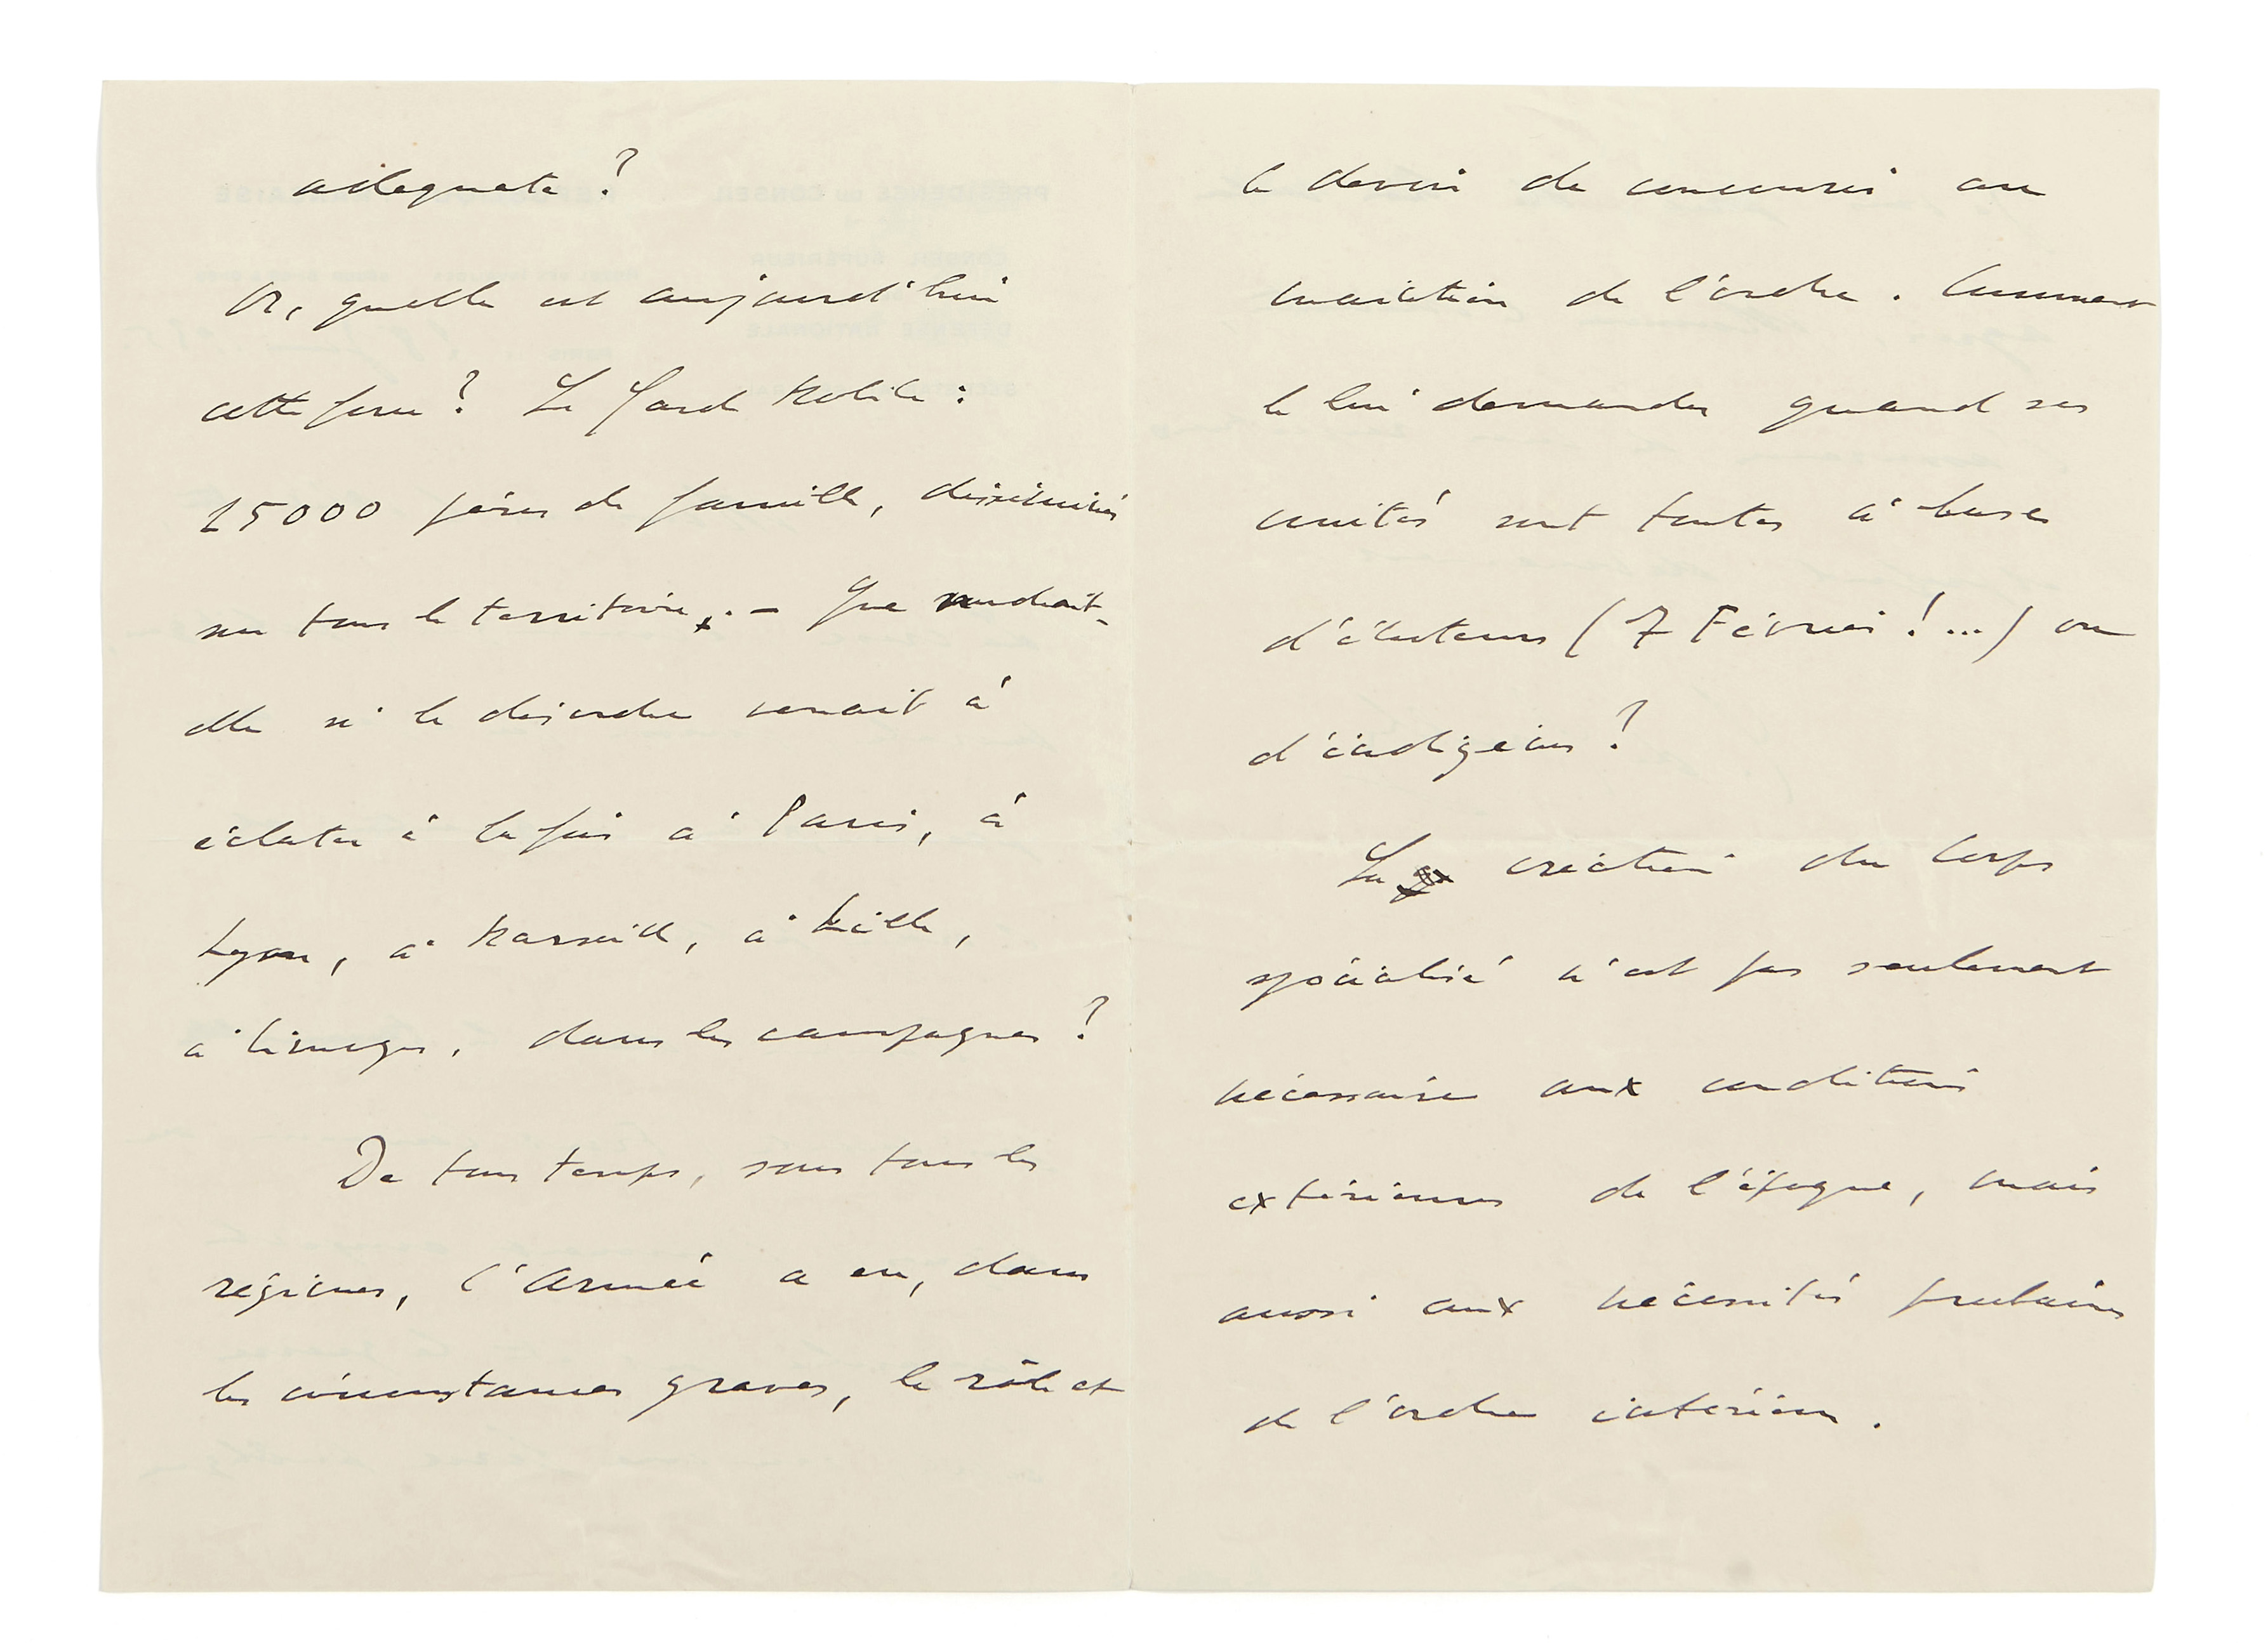 adéquate ?
Or, quelle est aujourd'hui
cette force ? La Garde Mobile :
15000 pères de famille, disséminés
sur tout le territoire. – Que vaudrait-
elle si le désordre venait à
éclater à la fois à Paris, à
Lyon, à Marseille, à Lille,
à Limoges, dans les campagnes ?
De tous temps, sous tous les
régimes, l'Armée a eu, dans
les circonstances graves, le rôle et
le devoir de concourir au
maintien de l'ordre. Comment
le lui demander quand ses
unités sont toutes à bases
d'électeurs (7 Février !...) ou
d'indigènes ?
La création du Corps
spécialisé n'est pas seulement
nécessaire aux conditions
extérieures de l'époque, mais
aussi aux nécessités prochaines
de l'ordre intérieur.